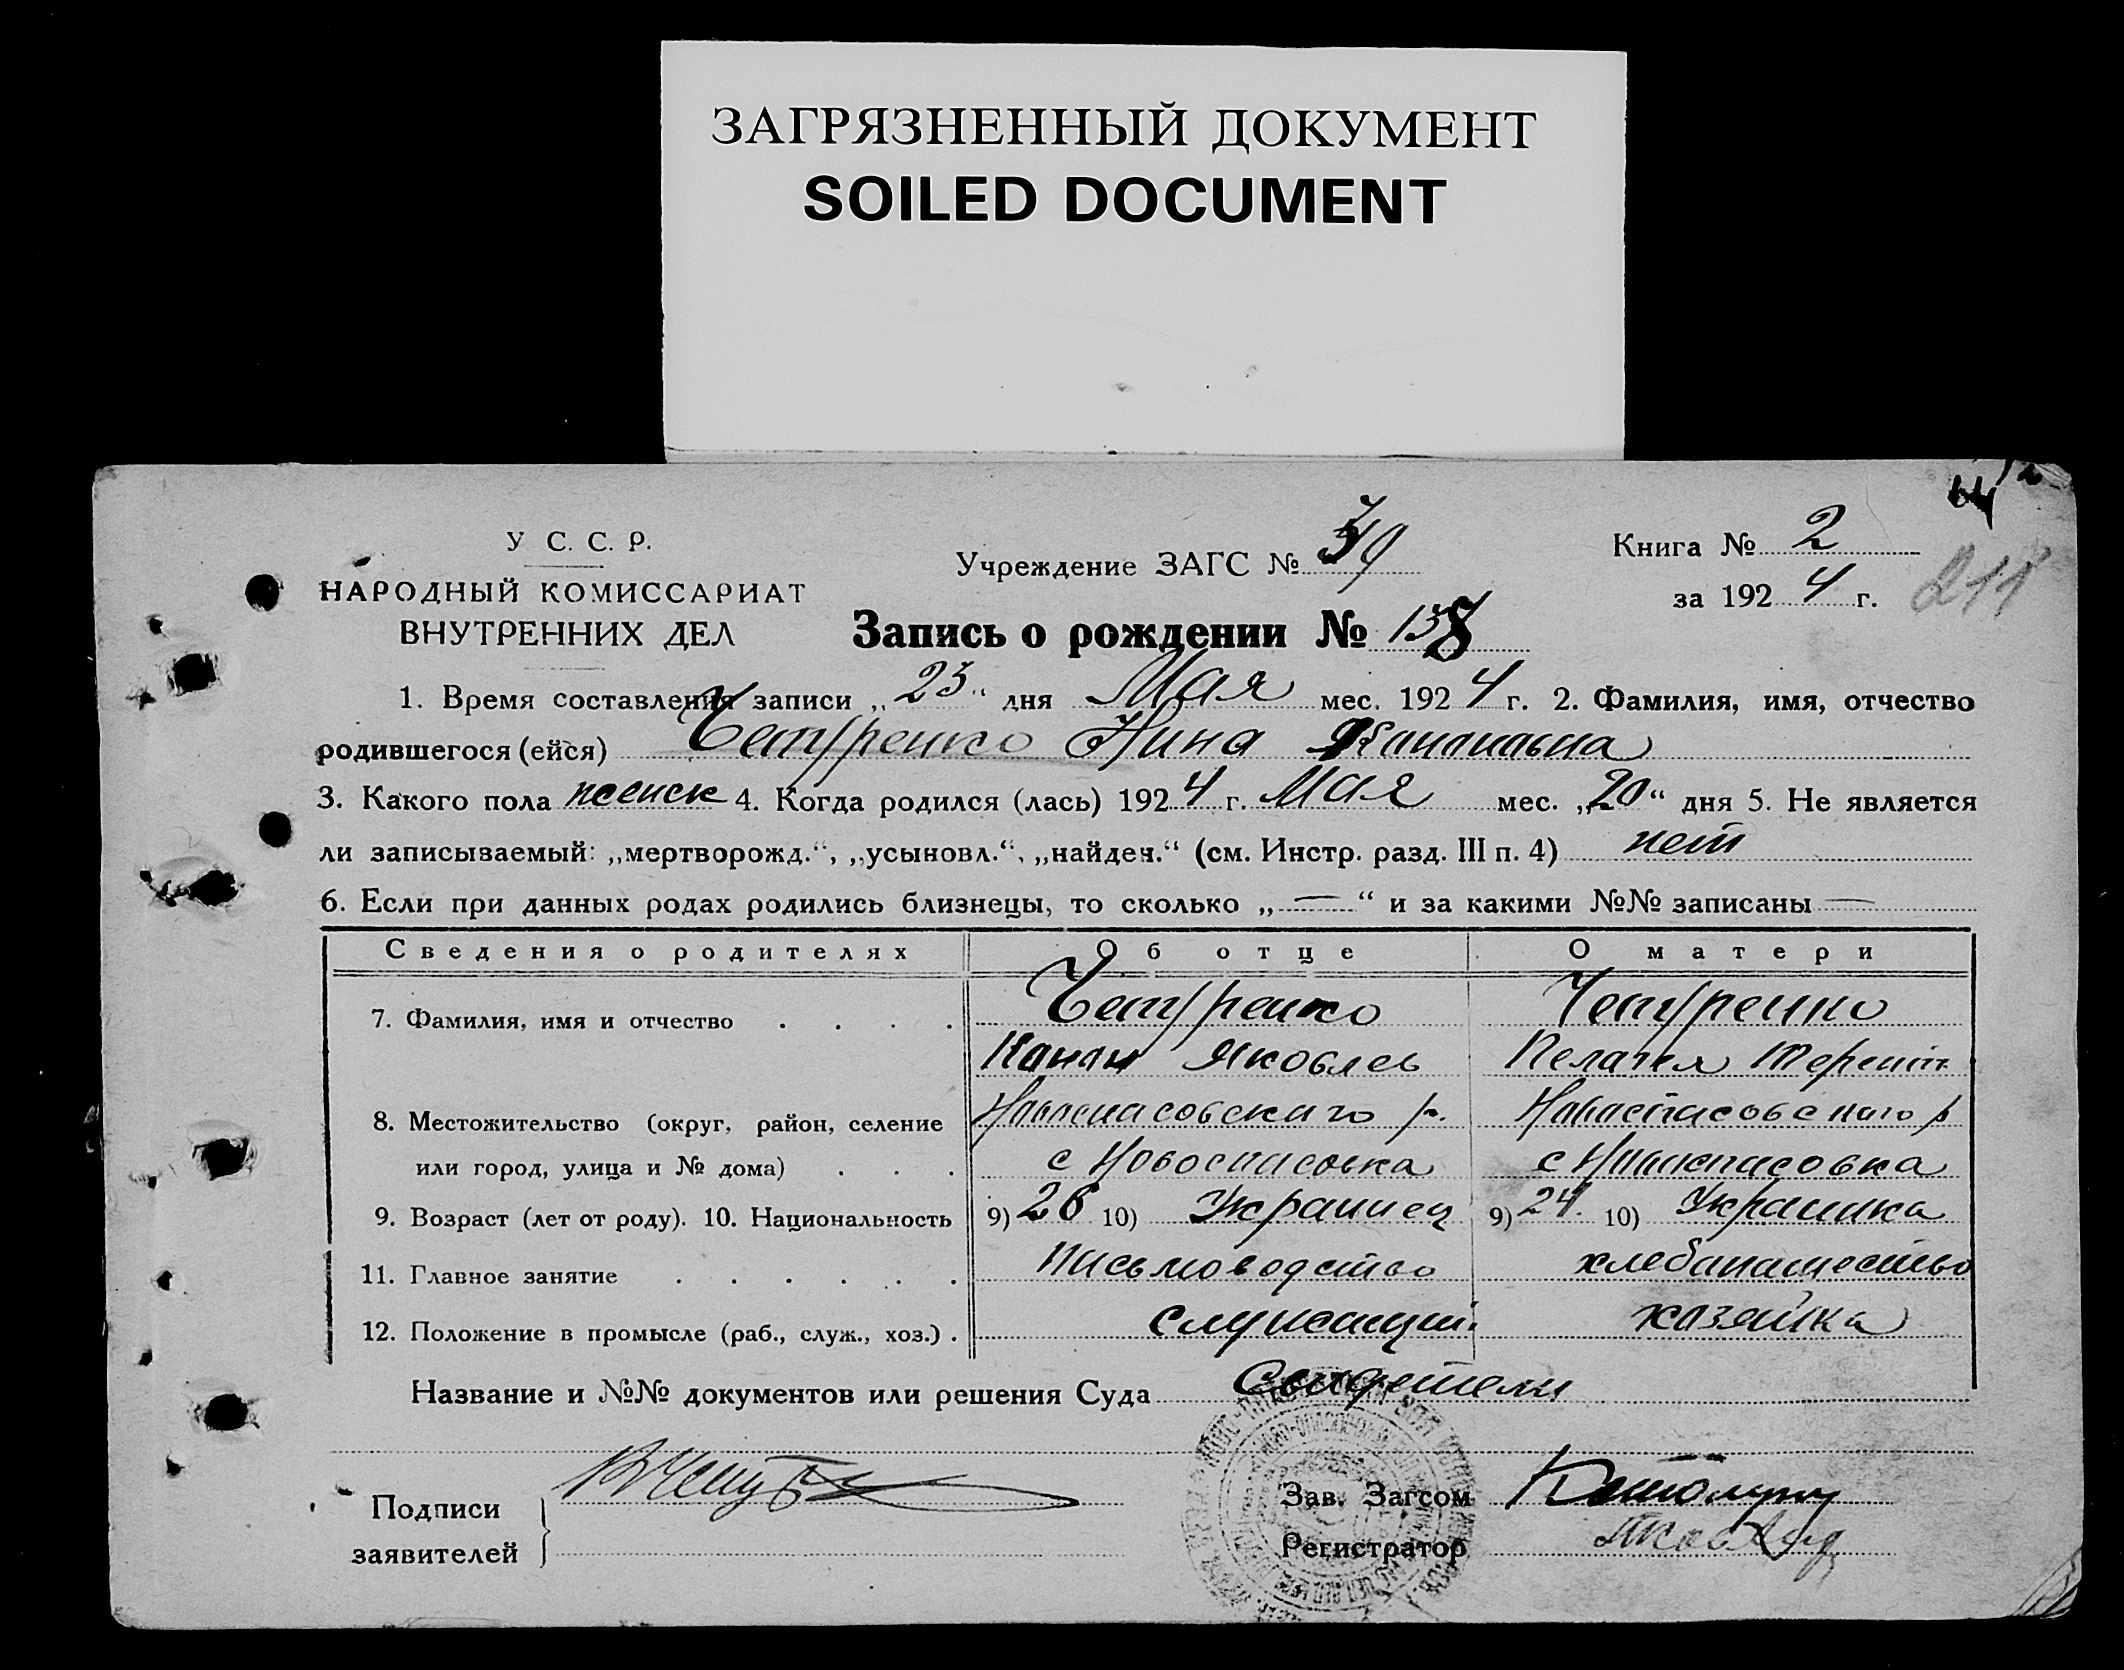 ЗАГРЯЗНЕННЫЙ ДОКУМЕНТ
SOILED DOCUMENT
У С. С. Р.
НАРОДНЫЙ КОМИССАРИАТ
ВНУТРЕННИХ ДЕЛ
Учреждение ЗАГС №
Книга № 2
за 1924 г.
211
Запись о рождении № 138
1. Время составления записи „23“ дня Мая мес. 1924 г. 2. Фамилия, имя, отчество
родившегося (ейся) Нина
3. Какого пола женск 4. Когда родился (лась) 1924 г. Мая мес. „20“ дня 5. Не является
ли записываемый: „мертворожд.“, „усыновл.“, „найден.“ (см. Инстр. разд. III п. 4) нет
6. Если при данных родах родились близнецы, то сколько „—“ и за какими №№ записаны —
Сведения о родителях Об отце О матери
7. Фамилия, имя и отчество . . . .
Яковлев Пелагея
8. Местожительство (округ, район, селение Новоспасовского р. Новоспасовского р
или город, улица и № дома) . . . с Новоспасовка с Новоспасовка
9. Возраст (лет от роду). 10. Национальность 9) 26 10) Украинец 9) 24. 10) Украинка
11. Главное занятие . . . . . . письмоводство хлебопашество
12. Положение в промысле (раб., служ., хоз.) . служащий. хозяйка
Название и №№ документов или решения Суда Свидетели
Подписи
заявителей
Зав. Загсом
Регистратор